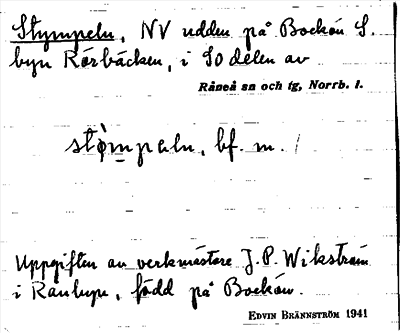 Stympeln, NV udden på Bockön S.
byn Rörbäcken, i SO delen av
Råneå sn och tg, Norrb. l.
stòmpəln, bf. m.
Uppgiften av verkmästare J. P. Wikström
i Ranbyn, född på Bockön.
EDVIN BRÄNNSTRÖM 1941